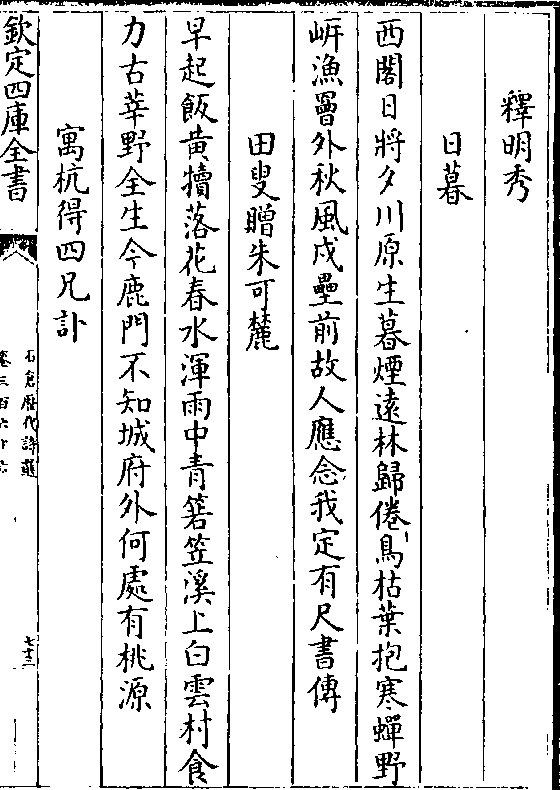 釋明秀
日暮
西閣日將夕川原生暮煙遠林歸倦鳥枯葉抱寒蟬野
岍漁罾外秋風戍壘前故人應念我定有尺書傳
田叟贈朱可麓
早起飯黃犢落花春水渾雨中青箬笠溪上白雲村食
力古莘野全生今鹿門不知城府外何處有桃源
寓杭得四兄訃
欽定四庫全書
石倉歴代詩選
七十三